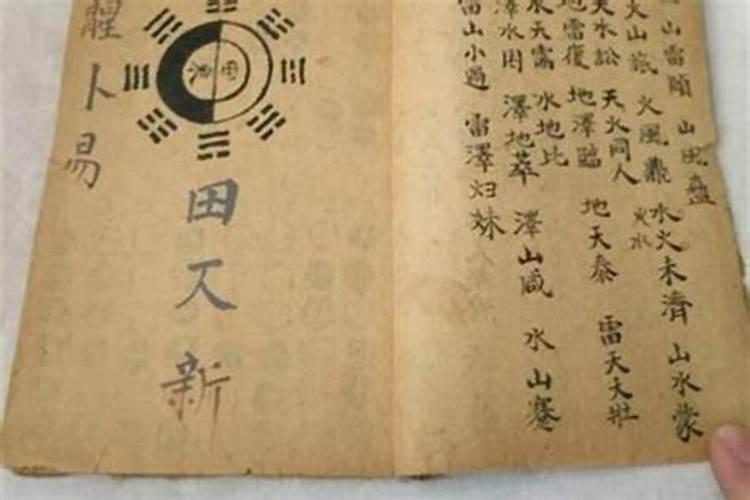 山雷頤 山風蠱
水火未濟 山水蒙
火山旅 火風鼎 火水
天水訟 天火同人
地雷復 地澤臨 地天泰 雷天大壯
水天需 水地比
澤水困 澤地萃 澤山咸 水山蹇
雷山小過 雷澤归妹
田又新
卜易